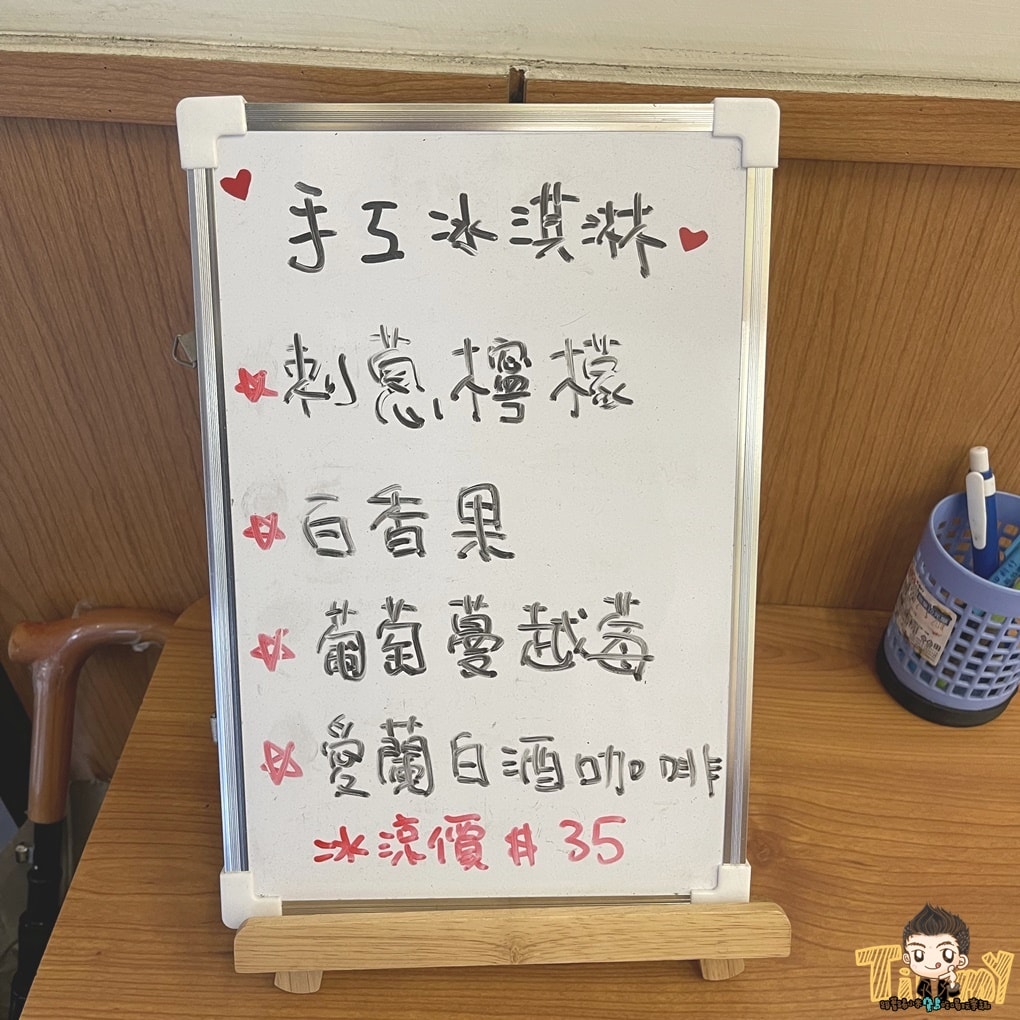 手工冰淇淋
刺蔥檸檬
百香果
葡萄蔓越莓
愛蘭白酒咖啡
冰涼價 # 35